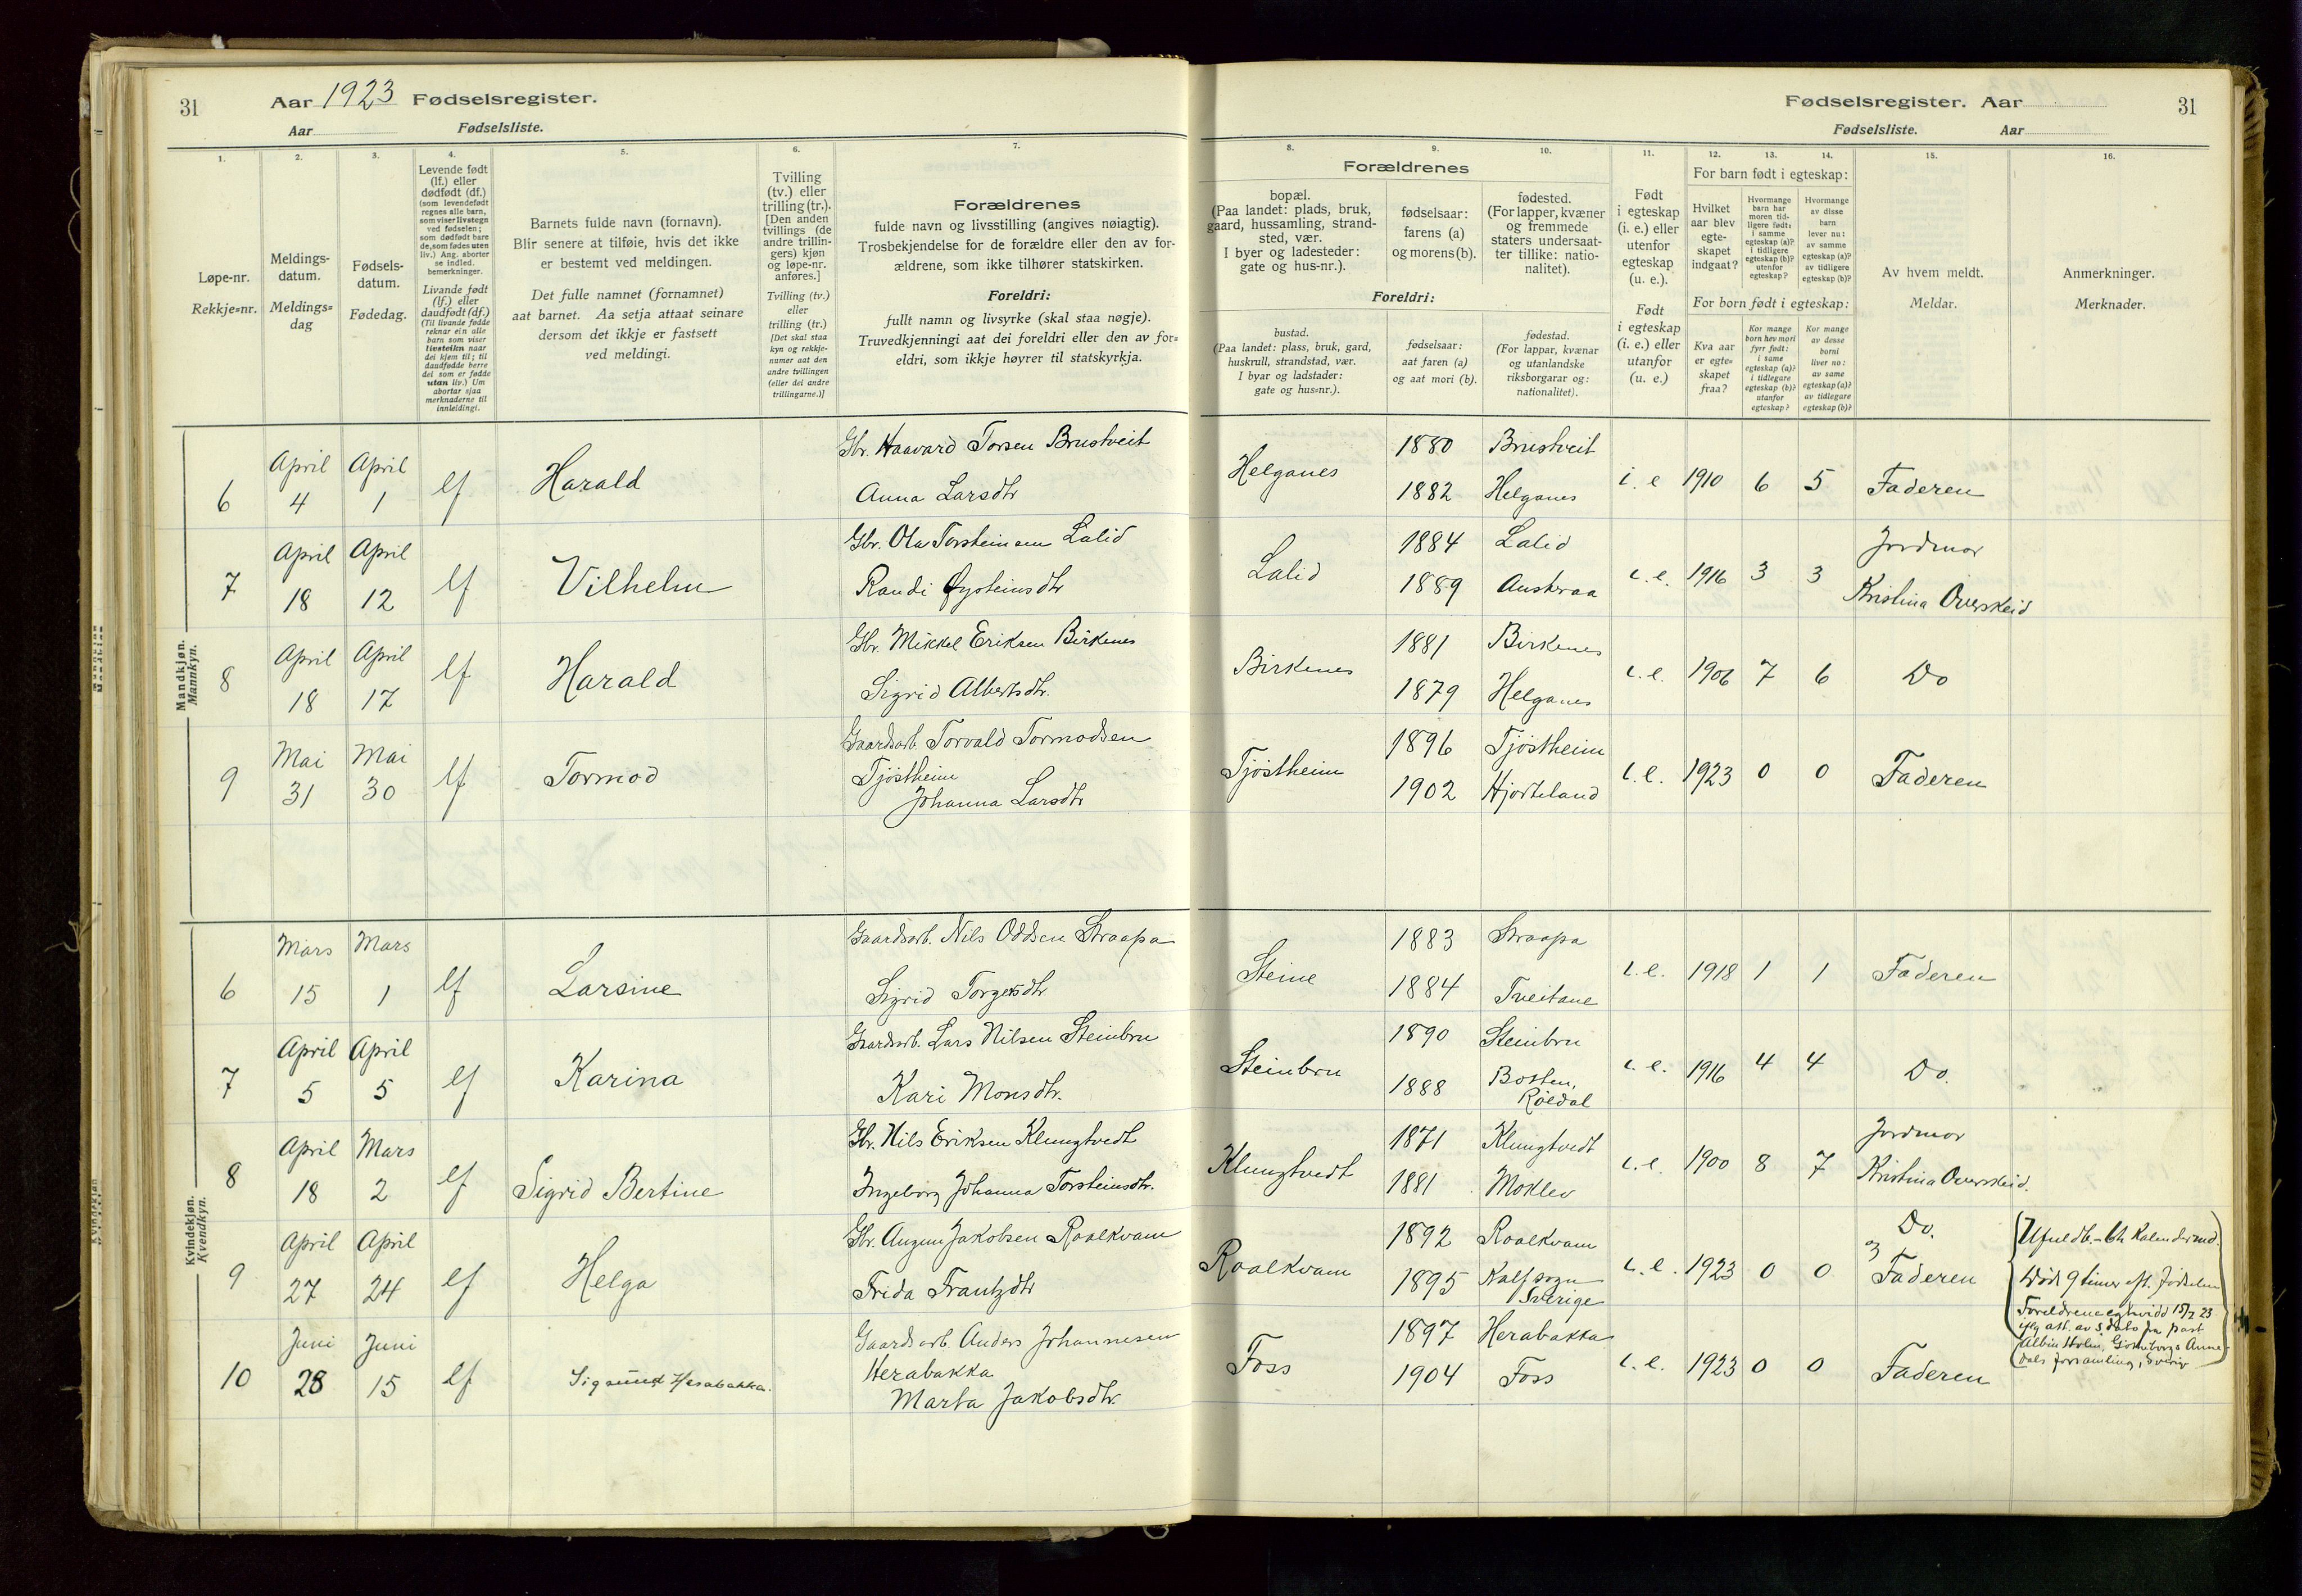 31 Aar 1923 Fødselsregister.
Aar Fødselsliste.
Fødselsregister. Aar 31
Fødselsliste. Aar
1.
Løpe-nr.
Rekkje=nr.
2.
Meldings-
datum.
Meldings=
dag
3.
Fødsels-
datum.
Fødedag.
4.
Levende født
(lf.) eller
dødfødt (df.)
(som levendefødt
regnes alle barn,
som viser livstegn
ved fødselen;
som dødfødt bare
de, som fødes uten
liv.) Ang. aborter
se indled.
bemerkninger.
Livande født
(lf.) eller
daudfødt (df.)
(Til livande fødde
reknar ein alle
barn som viser
livsteikn naar
dei kjem til; til
daudfødde berre
dei som er fødde
utan liv.) Um
abortar sjaa
merknaderne til
innleidingi.
5.
Barnets fulde navn (fornavn).
Blir senere at tilføie, hvis det ikke
er bestemt ved meldingen.
Det fulle namnet (fornamnet)
aat barnet. Aa setja attaat seinare
dersom det ikkje er fastsett
ved meldingi.
6.
Tvilling
(tv.) eller
trilling (tr.).
[Den anden
tvillings (de
andre trillin-
gers) kjøn
og løpe-nr.
anføres.]
Tvilling (tv.)
eller
trilling (tr.)
[Det skal staa
kyn og rekkje-
numer aat den
andre tvillingen
(eller dei andre
trillingarne.)]
7.
Forældrenes
fulde navn og livsstilling (angives nøiagtig).
Trosbekjendelse for de forældre eller den av for-
ældrene, som ikke tilhører statskirken.
Foreldri:
fullt namn og livsyrke (skal staa nøgje).
Truvedkjenningi aat dei foreldri eller den av for=
eldri, som ikkje høyrer til statskyrkja.
Forældrenes
8.
bopæl.
(Paa landet: plads, bruk,
gaard, hussamling, strand-
sted, vær.
I byer og ladesteder:
gate og hus-nr.).
9.
fødselsaar:
farens (a)
og morens (b).
10.
fødested.
(For lapper, kvæner
og fremmede
staters undersaat-
ter tillike: natio-
nalitet).
Foreldri:
bustad.
(Paa landet: plass, bruk, gard,
huskrull, strandstad, vær.
I byar og ladstader:
gate og hus=nr.).
fødselsaar:
aat faren (a)
og aat mori (b).
fødestad.
(For lappar, kvænar
og utanlandske
riksborgarar og:
nationalitet).
11.
Født
i egteskap
(i. e.) eller
utenfor
egteskap
(u. e.).
Født
i egteskap
(i. e.) eller
utanfor
(u. e.)
12. 13. 14.
For barn født i egteskap:
Hvilket
aar blev
egte-
skapet
indgaat?
Hvormange
barn har
moren tid-
ligere født:
i samme
egteskap (a)?
i tidligere
egteskap (b)?
utenfor
egteskap?
Hvormange
av disse
barn
lever nu:
av samme
egteskap (a)?
av tidligere
egteskap (b)?
For born født i egteskap:
Kva aar
er egte=
skapet
fraa?
Kor mange
born hev mori
fyrr født:
i same
egteskap (a)?
i tidlegare
egteskap (b)?
utanfor
egteskap?
Kor mange
av desse
borni
liver no:
av same
egteskap (a)?
av tidlegare
egteskap (b)?
15.
Av hvem meldt.
Meldar.
16.
Anmerkninger.
Merknader.
Mandkjøn.
Mannkyn.
6 April 4 April 1 lf Harald
Gbr. Haavard Torsen Brustveit
Anna Larsdtr
Helganes 1880 Brustveit
1882 Helganes
i. e 1910 6 5 Faderen
7 April 18 April 12 lf Vilhelm
Gbr. Ola Torsteinsen Lalid
Randi Øysteinsdtr
Lalid 1884 Lalid
1889 Austraa
i. e. 1916 3 3 Jordmor
Kristina Overskeid
8 April 18 April 17 lf Harald
Gbr. Mikkel Eriksen Birkenes
Sigrid Albertsdtr.
Birkenes 1881 Birkenes
1879 Helganes
i. e. 1906 7 6 Do
9 Mai 31 Mai 30 lf Tormod
Gaardsarb. Torvald Tormodsen
Tjøstheim
Johanna Larsdtr
Tjøstheim 1896 Tjøstheim
1902 Hjorteland
i. e. 1923 0 0 Faderen
Kvindekjøn.
Kvendkyn.
6 Mars 15 Mars 1 lf Larsine
Gaardsarb. Nils Oddsen Straapa
Sigrid Torgersdtr.
Steine 1883 Straapa
1884 Tveitane
i. e. 1918 1 1 Faderen
7 April 5 April 5 lf Karina
Gaardsarb. Lars Nilsen Steinbru
Kari Monsdtr.
Steinbru 1890 Steinbru
1888 Botten,
Røldal
i. e. 1916 4 4 Do.
8 April 18 Mars 2 lf Sigrid Bertine
Gbr. Nils Eriksen Klungtvedt
Ingeborg Johanna Torsteinsdtr.
Klungtvedt 1871 Klungtvedt
1881 Moklev
i. e. 1900 8 7 Jordmor
Kristina Overskeid.
9 April 27 April 24 lf Helga
Gbr. Augun Jakobsen Roalkvam
Frida Frantzdtr
Roalkvam 1892 Roalkvam
1895 Kalfsogn
Sverige
i. e. 1923 0 0 Do.
Faderen
Ufuldb. - 6te Kalendermd.
Død 9 timer eft. fødselen
Foreldrene egtevidd 15/2 23
iflg att. av s. dato fra past
Albin Holm, Göteborgs Anne-
dals forsamling, Sverige
10 Juni 28 Juni 15 lf Sigsund Herabakka.
Gaardsarb. Anders Johannesen
Herabakka
Marta Jakobsdtr.
Foss 1897 Herabakka
1904 Foss
i. e. 1923 0 0 Faderen